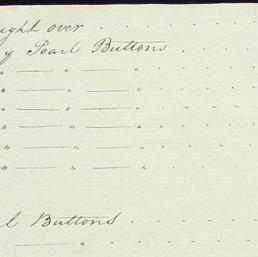 ught over
y Pearl Buttons
" — " — "
" — " — "
" — " — "
" — " — "
" — " — "
" — " — "
l Buttons
— "